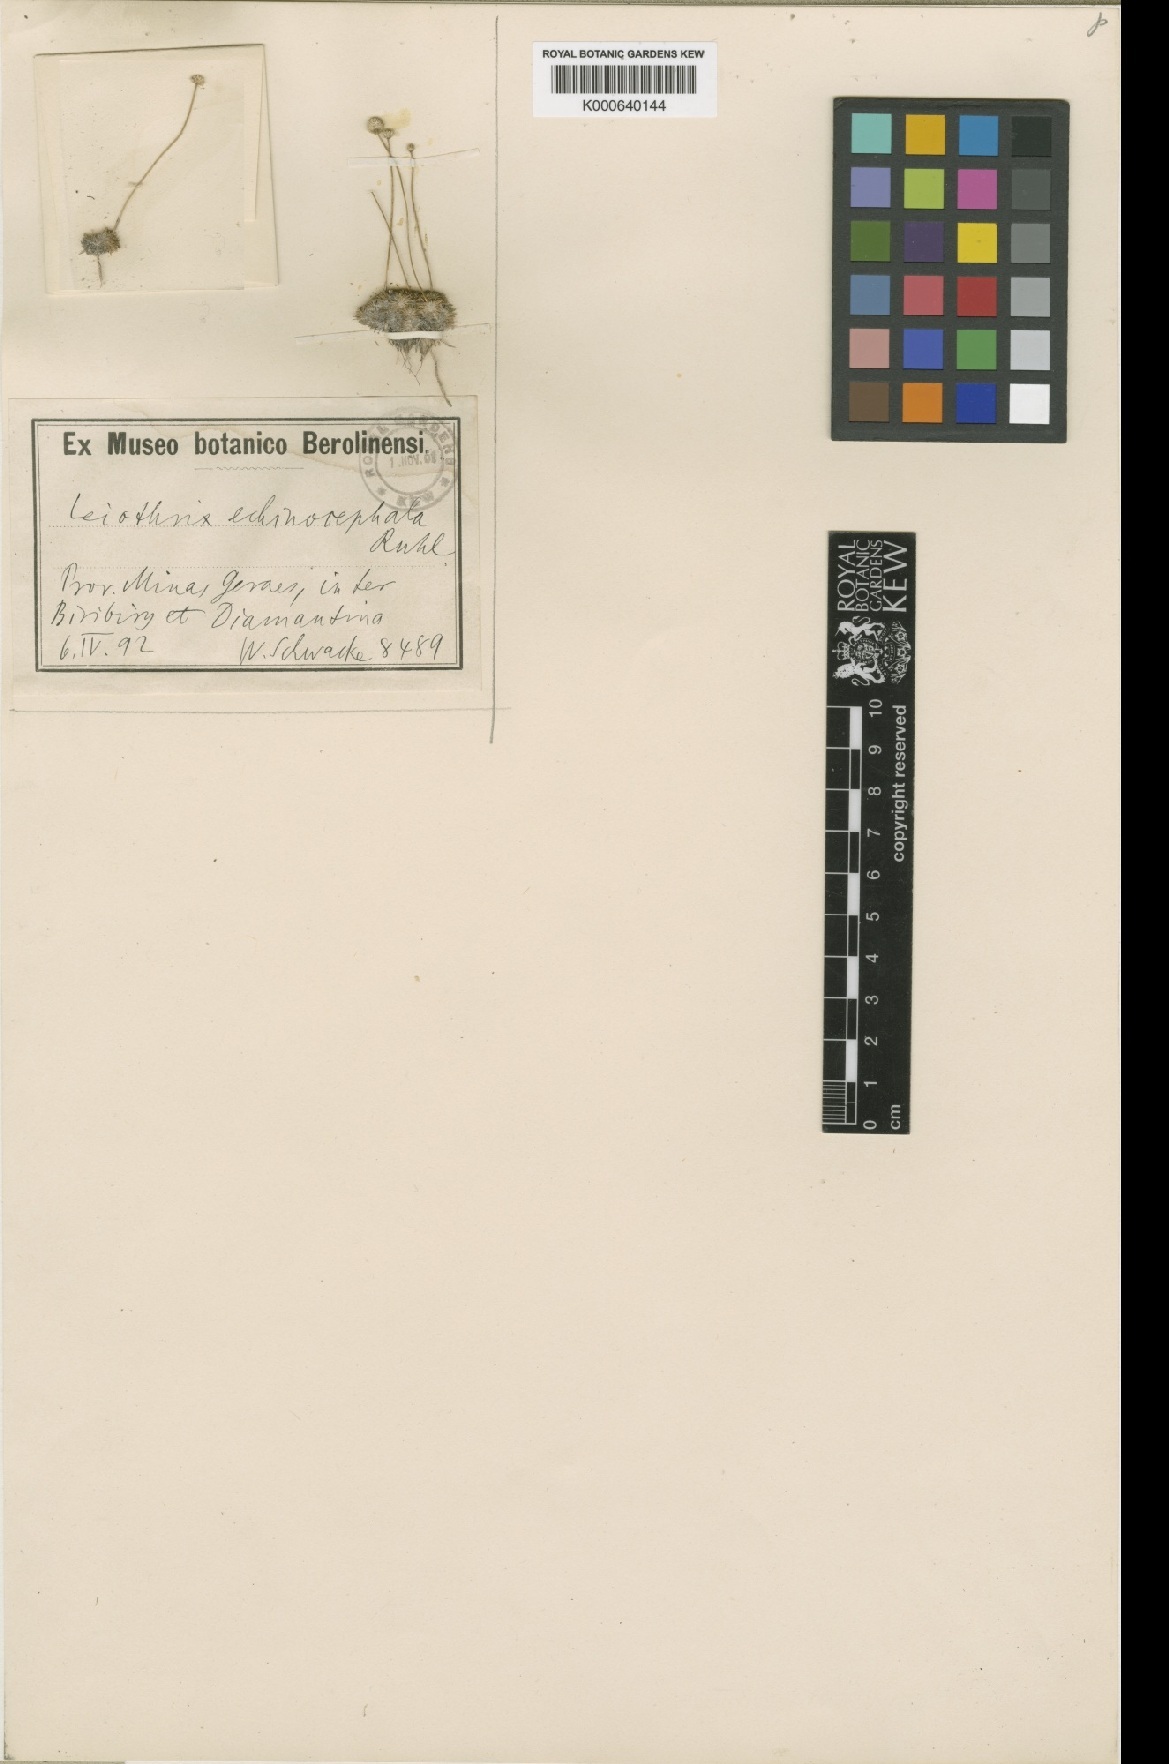 ROYAL BOTANIC GARDENS KEW
K000640144
Ex Museo botanico Berolinensi.
Leiothrix echinocephala
Ruhl.
Prov. Minas Geraes, inter
Biribiry et Diamantina
6.IV.92 W. Schwacke 8489
ROYAL
BOTANIC
GARDENS
KEW
copyright reserved
0 1 2 3 4 5 6 7 8 9 10
cm